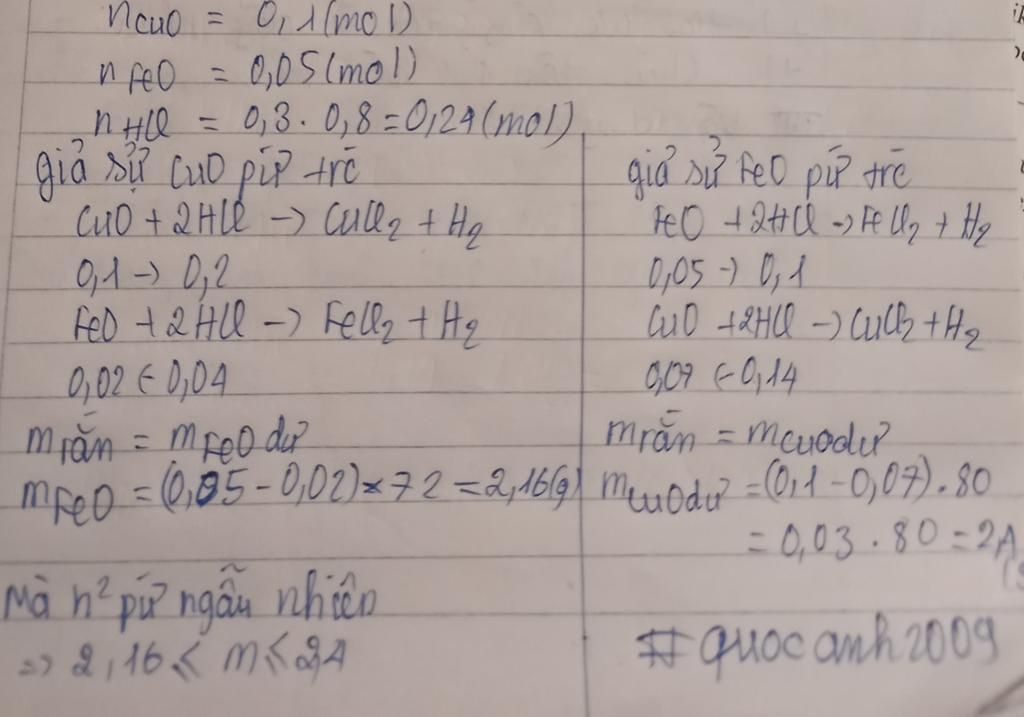 nCuO = 0,1(mol)
nFeO = 0,05(mol)
nHCl = 0,3 . 0,8 = 0,24(mol)
giả sử CuO pứ trc
CuO + 2HCl -> CuCl2 + H2
0,1 -> 0,2
FeO + 2HCl -> FeCl2 + H2
0,02 <- 0,04
mrắn = mFeO dư
mFeO = (0,05 - 0,02) x 72 = 2,16(g)
Mà h² pứ ngẫu nhiên
=> 2,16 ≤ m ≤ 2,4
giả sử FeO pứ trc
FeO + 2HCl -> FeCl2 + H2
0,05 -> 0,1
CuO + 2HCl -> CuCl2 + H2
0,07 <- 0,14
mrắn = mCuO dư
mCuO dư = (0,1 - 0,07) . 80
= 0,03 . 80 = 2,4
#quocanh2009